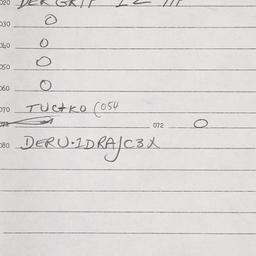 020 DER GRIT
030 O
040 O
050 O
060 O
070 TUCHKO (054
072 O
080 DERU·1DRA/C3X